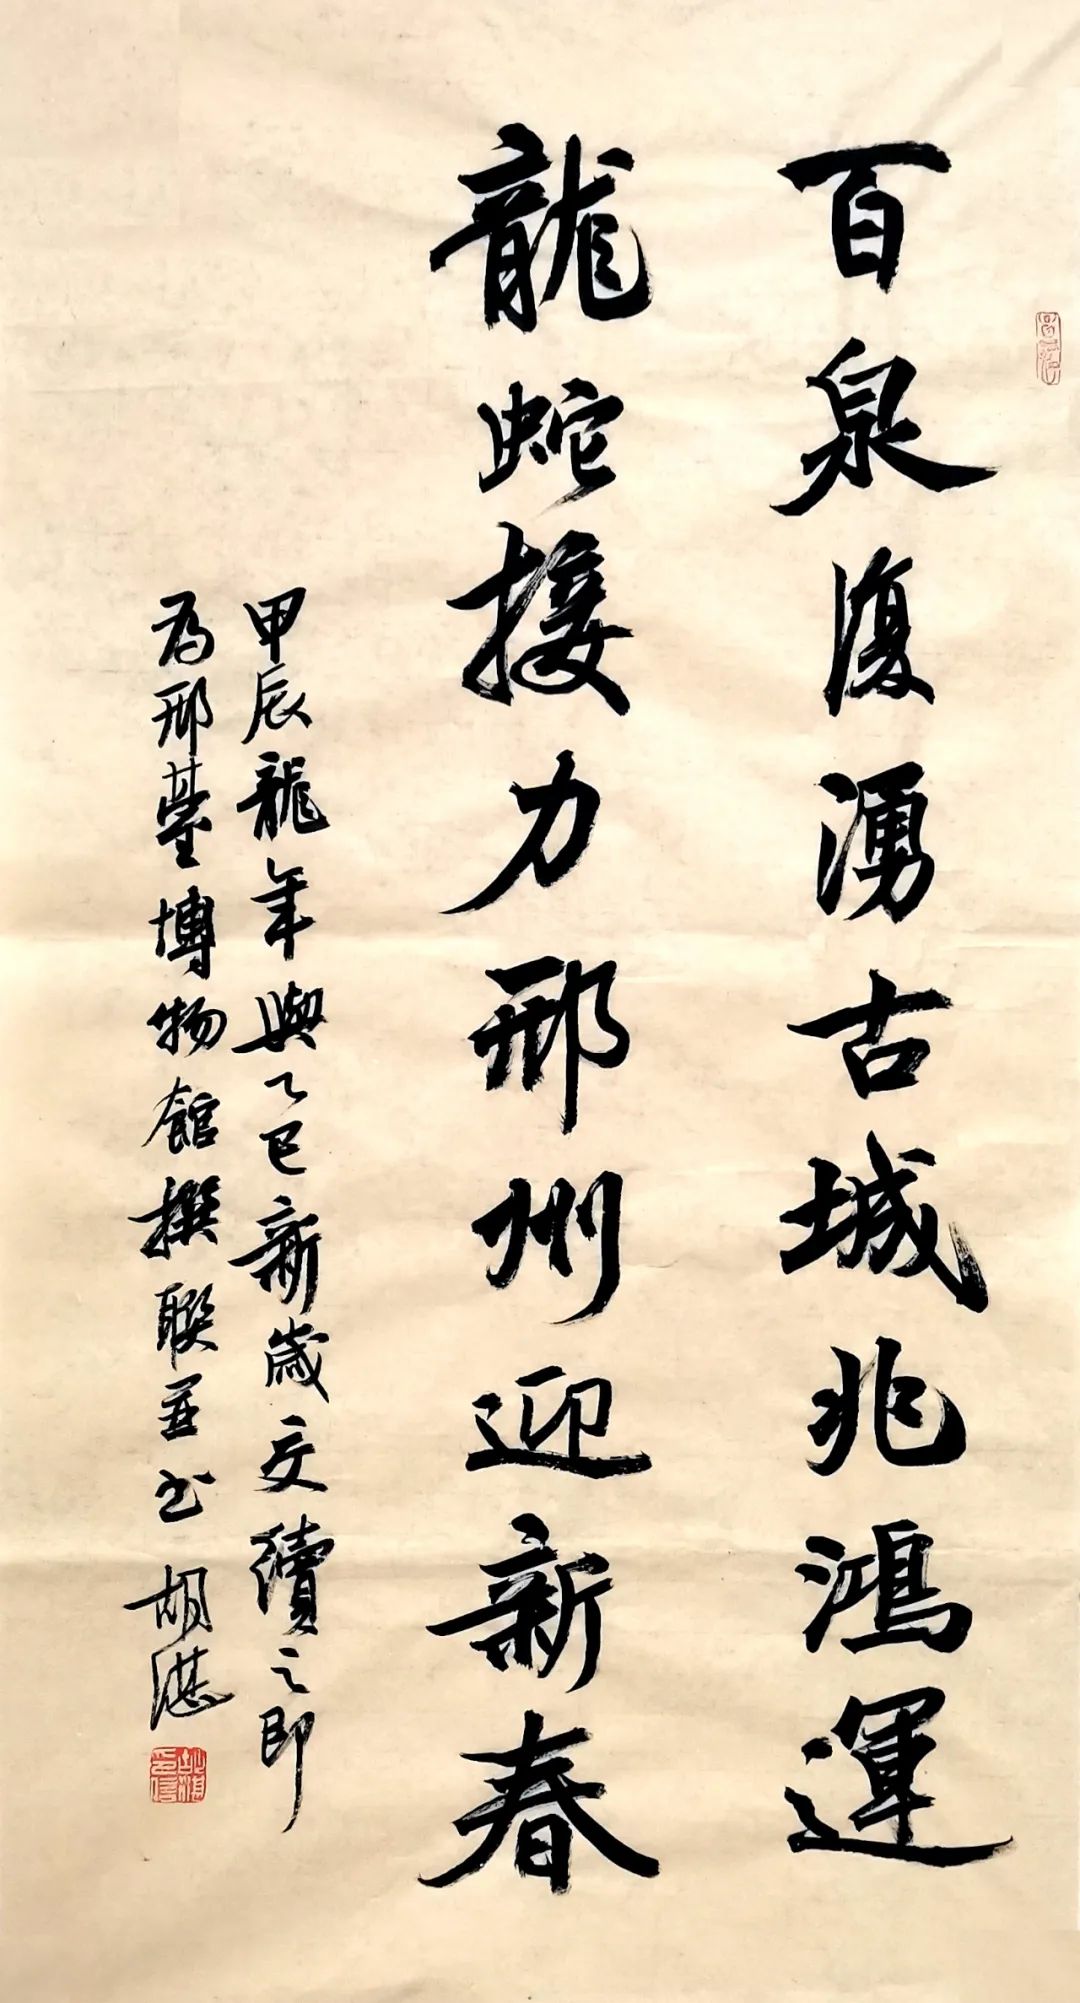 百泉復湧古城兆鴻運
龍蛇接力邢州迎新春
甲辰龍年與乙巳新歲交續之即
為邢臺博物館撰聯並书 胡湛